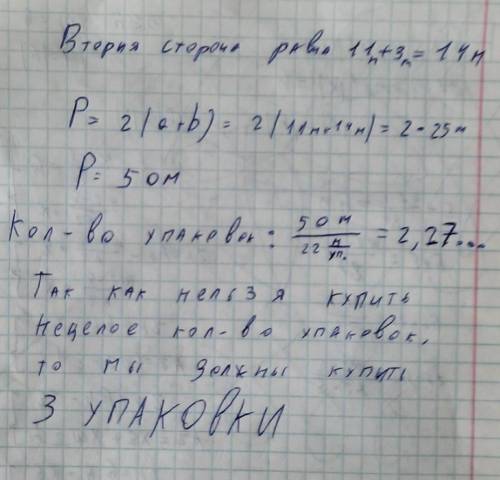 Вторая сторона равна 11м+3м=14м
P= 2(a+b)= 2(11м+14м)=2·25м
P= 50м
Кол-во упаковок: 50м / 22 м/уп. = 2,27...
Так как нельзя купить
нецелое кол-во упаковок,
то мы должны купить
3 УПАКОВКИ